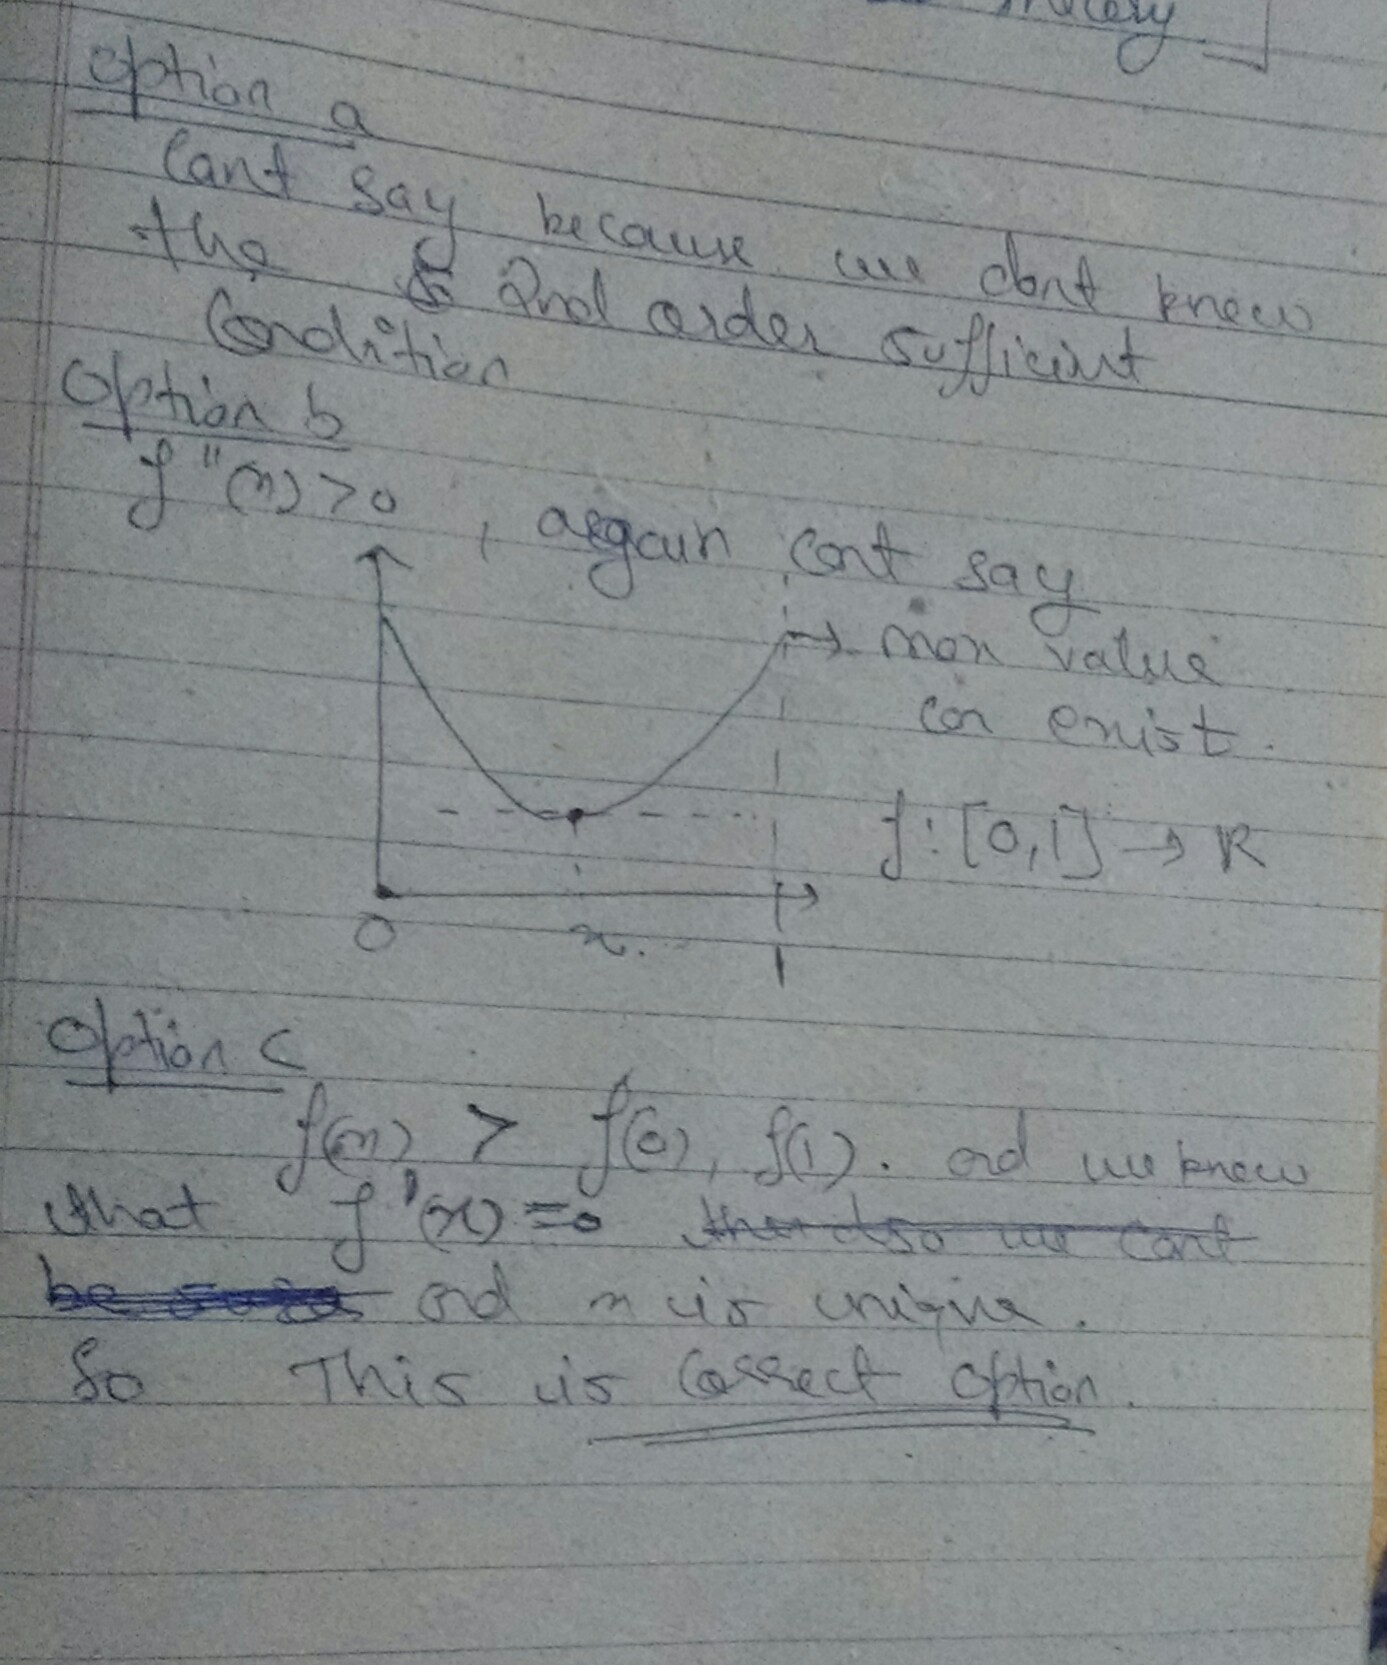 Option a
Cant say because we dont know
the 2nd order sufficient
Condition
Option b
f"(x)>0 , again cant say
→ max value
can exist.
f:[0,1]→R
0 x. 1
Option c
f(x) > f(0), f(1). and we know
that f'(x)=0
and x is unique.
So This is correct option.